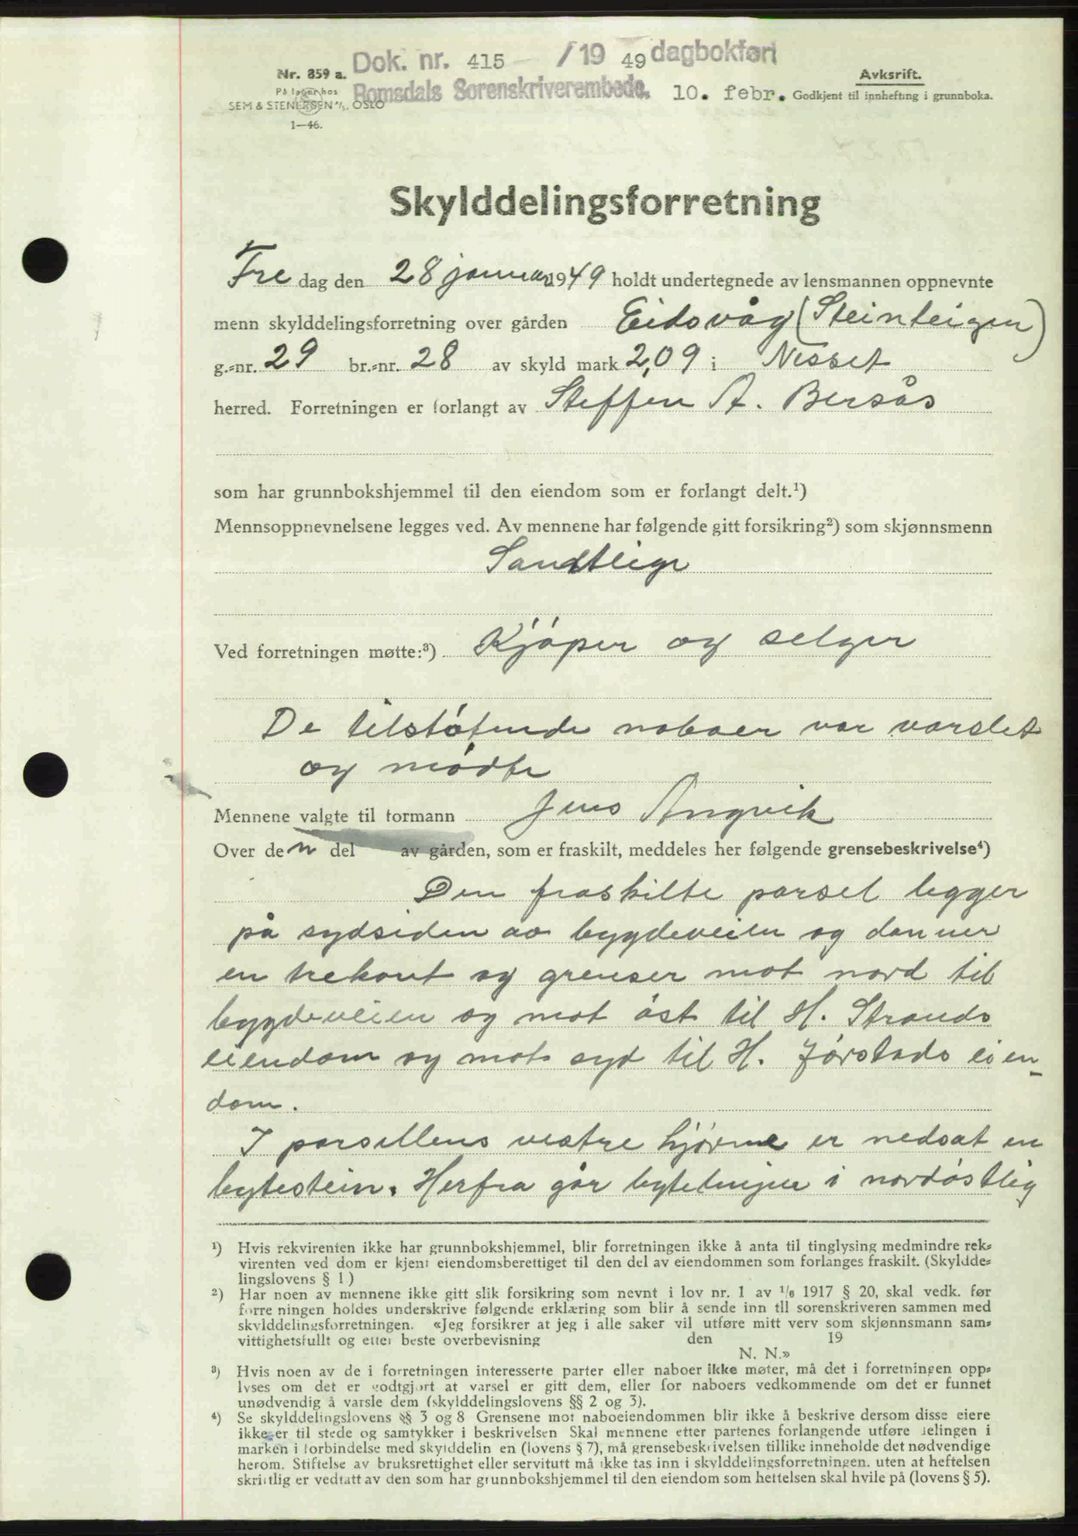 Dok. nr. 415 / 19 49 dagbokført
Nr. 859 a.
Avskrift.
På lager hos
Romsdals Sorenskriverembede. 10. febr.
Godkjent til innhefting i grunnboka.
SEM & STENERSEN A/S, OSLO
1—46.
Skylddelingsforretning
Fre dag den 28 januar 1949 holdt undertegnede av lensmannen oppnevnte
menn skylddelingsforretning over gården Eidsvåg (Steinteigen)
g.-nr. 29 br.-nr. 28 av skyld mark 2,09 i Nesset
herred. Forretningen er forlangt av Steffen A. Bersås
som har grunnbokshjemmel til den eiendom som er forlangt delt.¹)
Mennsoppnevnelsene legges ved. Av mennene har følgende gitt forsikring²) som skjønnsmenn
Samtlige
Ved forretningen møtte:³) Kjøper og selger
De tilstøtende naboer var varslet
og mødte
Mennene valgte til formann Jens Angvik
Over den del av gården, som er fraskilt, meddeles her følgende grensebeskrivelse⁴)
Den fraskilte parsel ligger
på sydsiden av bygdeveien og danner
en trekant og grenser mot nord til
bygdeveien og mot øst til H. Strands
eiendom og mot syd til H. Jørstads eien-
dom.
I parsellens vestre hjørne er nedsat en
bytestein. Herfra går bytelinjen i nordøstlig
¹) Hvis rekvirenten ikke har grunnbokshjemmel, blir forretningen ikke å anta til tinglysing medmindre rek-
virenten ved dom er kjent eiendomsberettiget til den del av eiendommen som forlanges fraskilt. (Skyldde-
lingslovens § 1)
²) Har noen av mennene ikke gitt slik forsikring som nevnt i lov nr. 1 av 1/6 1917 § 20, skal vedk. før
forretningen holdes underskrive følgende erklæring som blir å sende inn til sorenskriveren sammen med
skylddelingsforretningen. «Jeg forsikrer at jeg i alle saker vil utføre mitt verv som skjønnsmann sam-
vittighetsfullt og etter beste overbevisning den 19
N. N.»
³) Hvis noen av de i forretningen interesserte parter eller naboer ikke møter, må det i forretningen opp-
lyses om det er godtgjort at varsel er gitt dem, eller for naboers vedkommende om det er funnet
unødvendig å varsle dem (skylddelingslovens §§ 2 og 3).
⁴) Se skylddelingslovens §§ 3 og 8 Grensene mot naboeiendommen blir ikke å beskrive dersom disse eiere
ikke er til stede og samtykker i beskrivelsen Skal mennene etter partenes forlangende utføre delingen i
marken i forbindelse med skylddelingen (lovens § 7), må grensebeskrivelsen tillike inneholde det nødvendige
herom. Stiftelse av bruksrettighet eller servitutt må ikke tas inn i skylddelingsforretningen, uten at heftelsen
skriftlig er vedtatt av den som har grunnbokshjemmel til den eiendom som heftelsen skal hvile på (lovens § 5).